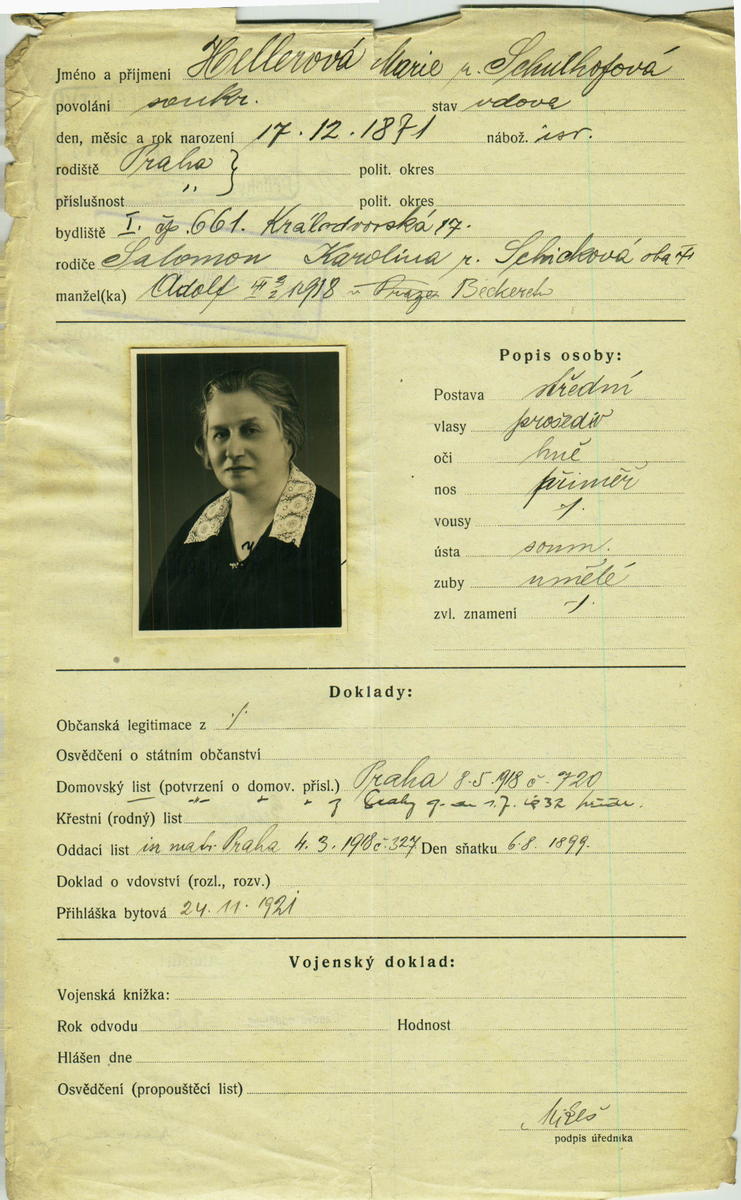 Jméno a příjmení Hellerová Marie r. Schulhofová
povolání soukr. stav vdova
den, měsíc a rok narození 17.12.1871 nábož. isr.
rodiště Praha } polit. okres
příslušnost " } polit. okres
bydliště I. čp. 661. Královdvorská 17.
rodiče Salomon Karolina r. Schicková oba †
manžel(ka) Adolf 1918
Popis osoby:
Postava střední
vlasy prošediv
oči hně
nos přiměř
vousy -/.
ústa soum.
zuby umělé
zvl. znamení -/.
Doklady:
Občanská legitimace z ./.
Osvědčení o státním občanství
Domovský list (potvrzení o domov. přísl.) Praha 8.5.1918 č. 720
Křestní (rodný) list
Oddací list in matr. Praha 4.3.1918 č. 327 Den sňatku 6.8.1899.
Doklad o vdovství (rozl., rozv.)
Přihláška bytová 24.11.1921
Vojenský doklad:
Vojenská knížka:
Rok odvodu Hodnost
Hlášen dne
Osvědčení (propouštěcí list)
Mikeš
podpis úředníka